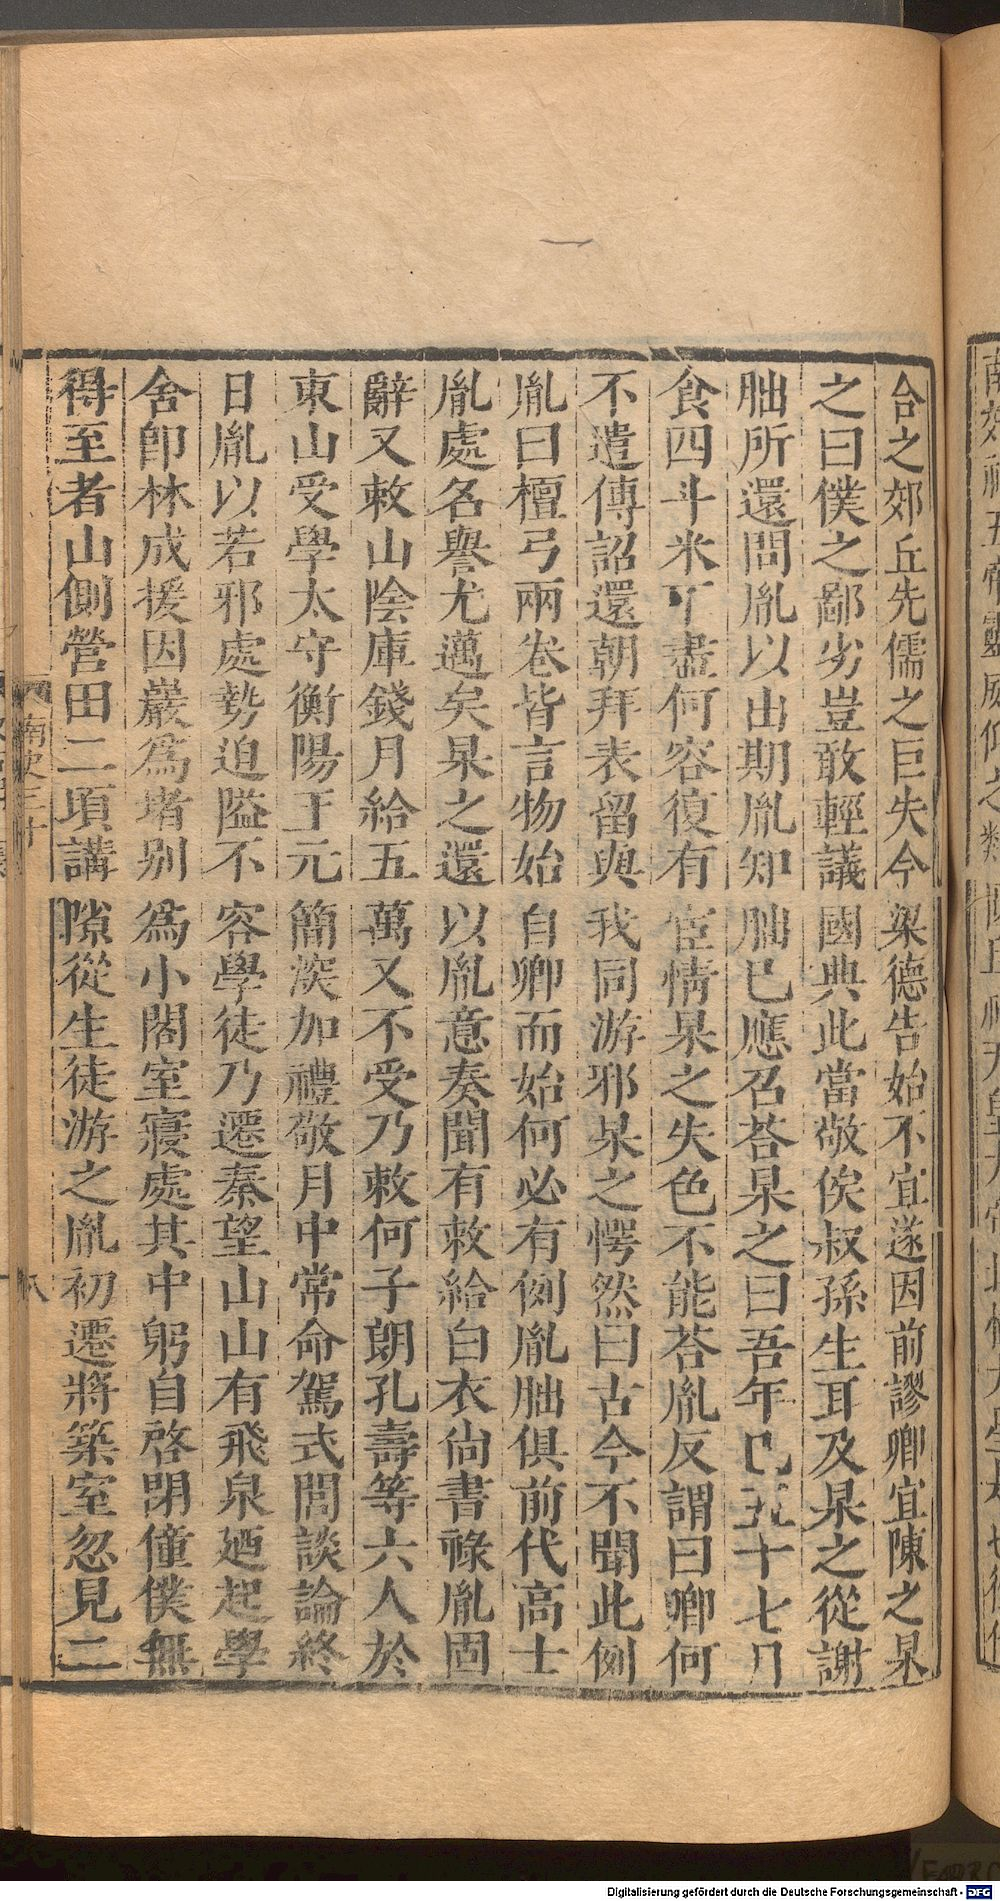 合之郊丘先儒之巨失今梁德告始不宜遂因前謬卿宜陳之杲
之曰僕之鄙劣豈敢輕議國典此當敬俟叔孫生耳及杲之從謝
朏所還問胤以出期胤知朏已應召荅杲之曰吾年已五十七月
食四斗米不盡何容復有宦情杲之失色不能荅胤反謂曰卿何
不遣傳詔還朝拜表留與我同游邪杲之愕然曰古今不聞此例
胤曰檀弓兩卷皆言物始自卿而始何必有例胤朏俱前代高士
胤處名譽尤邁矣杲之還以胤意奏聞有敕給白衣尙書祿胤固
辭又敕山陰庫錢月給五萬又不受乃敕何子朗孔壽等六人於
東山受學太守衡陽王元簡深加禮敬月中常命駕式閭談論終
日胤以若邪處勢迫隘不容學徒乃遷秦望山山有飛泉迺起學
舍卽林成援因巖爲堵别爲小閤室寢處其中躬自啓閉僮僕無
得至者山側營田二頃講隙從生徒游之胤初遷將築室忽見二
南史三十
八
Digitalisierung gefördert durch die Deutsche Forschungsgemeinschaft - DFG